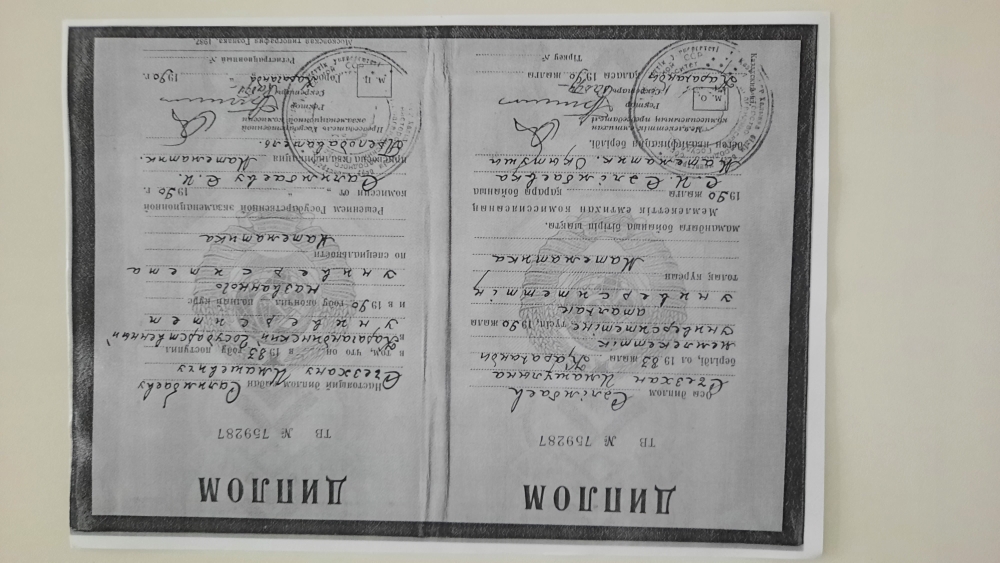 ДИПЛОМ
ТВ № 759287
Осы диплом Сәлімбаев
берілді, ол 1983 жылы Қарағанды
мемлекеттік
университетіне түсіп, 1990 жылы
аталған
университетің
толық курсын Математика
мамандығы бойынша бітіріп шықты.
Мемлекеттік емтихан комиссиясының
1990 жылғы қарары бойынша
С. И. Сәлімбаевқа
Математик. Оқытушы
деген квалификация берілді.
Мемлекеттік емтихан
комиссиясының председателі
Ректор
Секретарь
М. О.
Қарағанды қаласы 1990 жылғы
Тіркеу №
ДИПЛОМ
ТВ № 759287
Настоящий диплом выдан Салимбаеву
Имашевичу
в том, что он в 1983 году поступил
в Карагандинский государственный
университет
и в 1990 году окончил полный курс
названного
университета
по специальности
Математика
Решением Государственной экзаменационной
комиссии от 1990 г.
Салимбаеву С. И.
присвоена квалификация Математик.
Преподаватель.
Председатель Государственной
экзаменационной комиссии
Ректор
Секретарь
М. П.
Город Караганда 1990 г.
Регистрационный №
Московская типография Гознака. 1987.